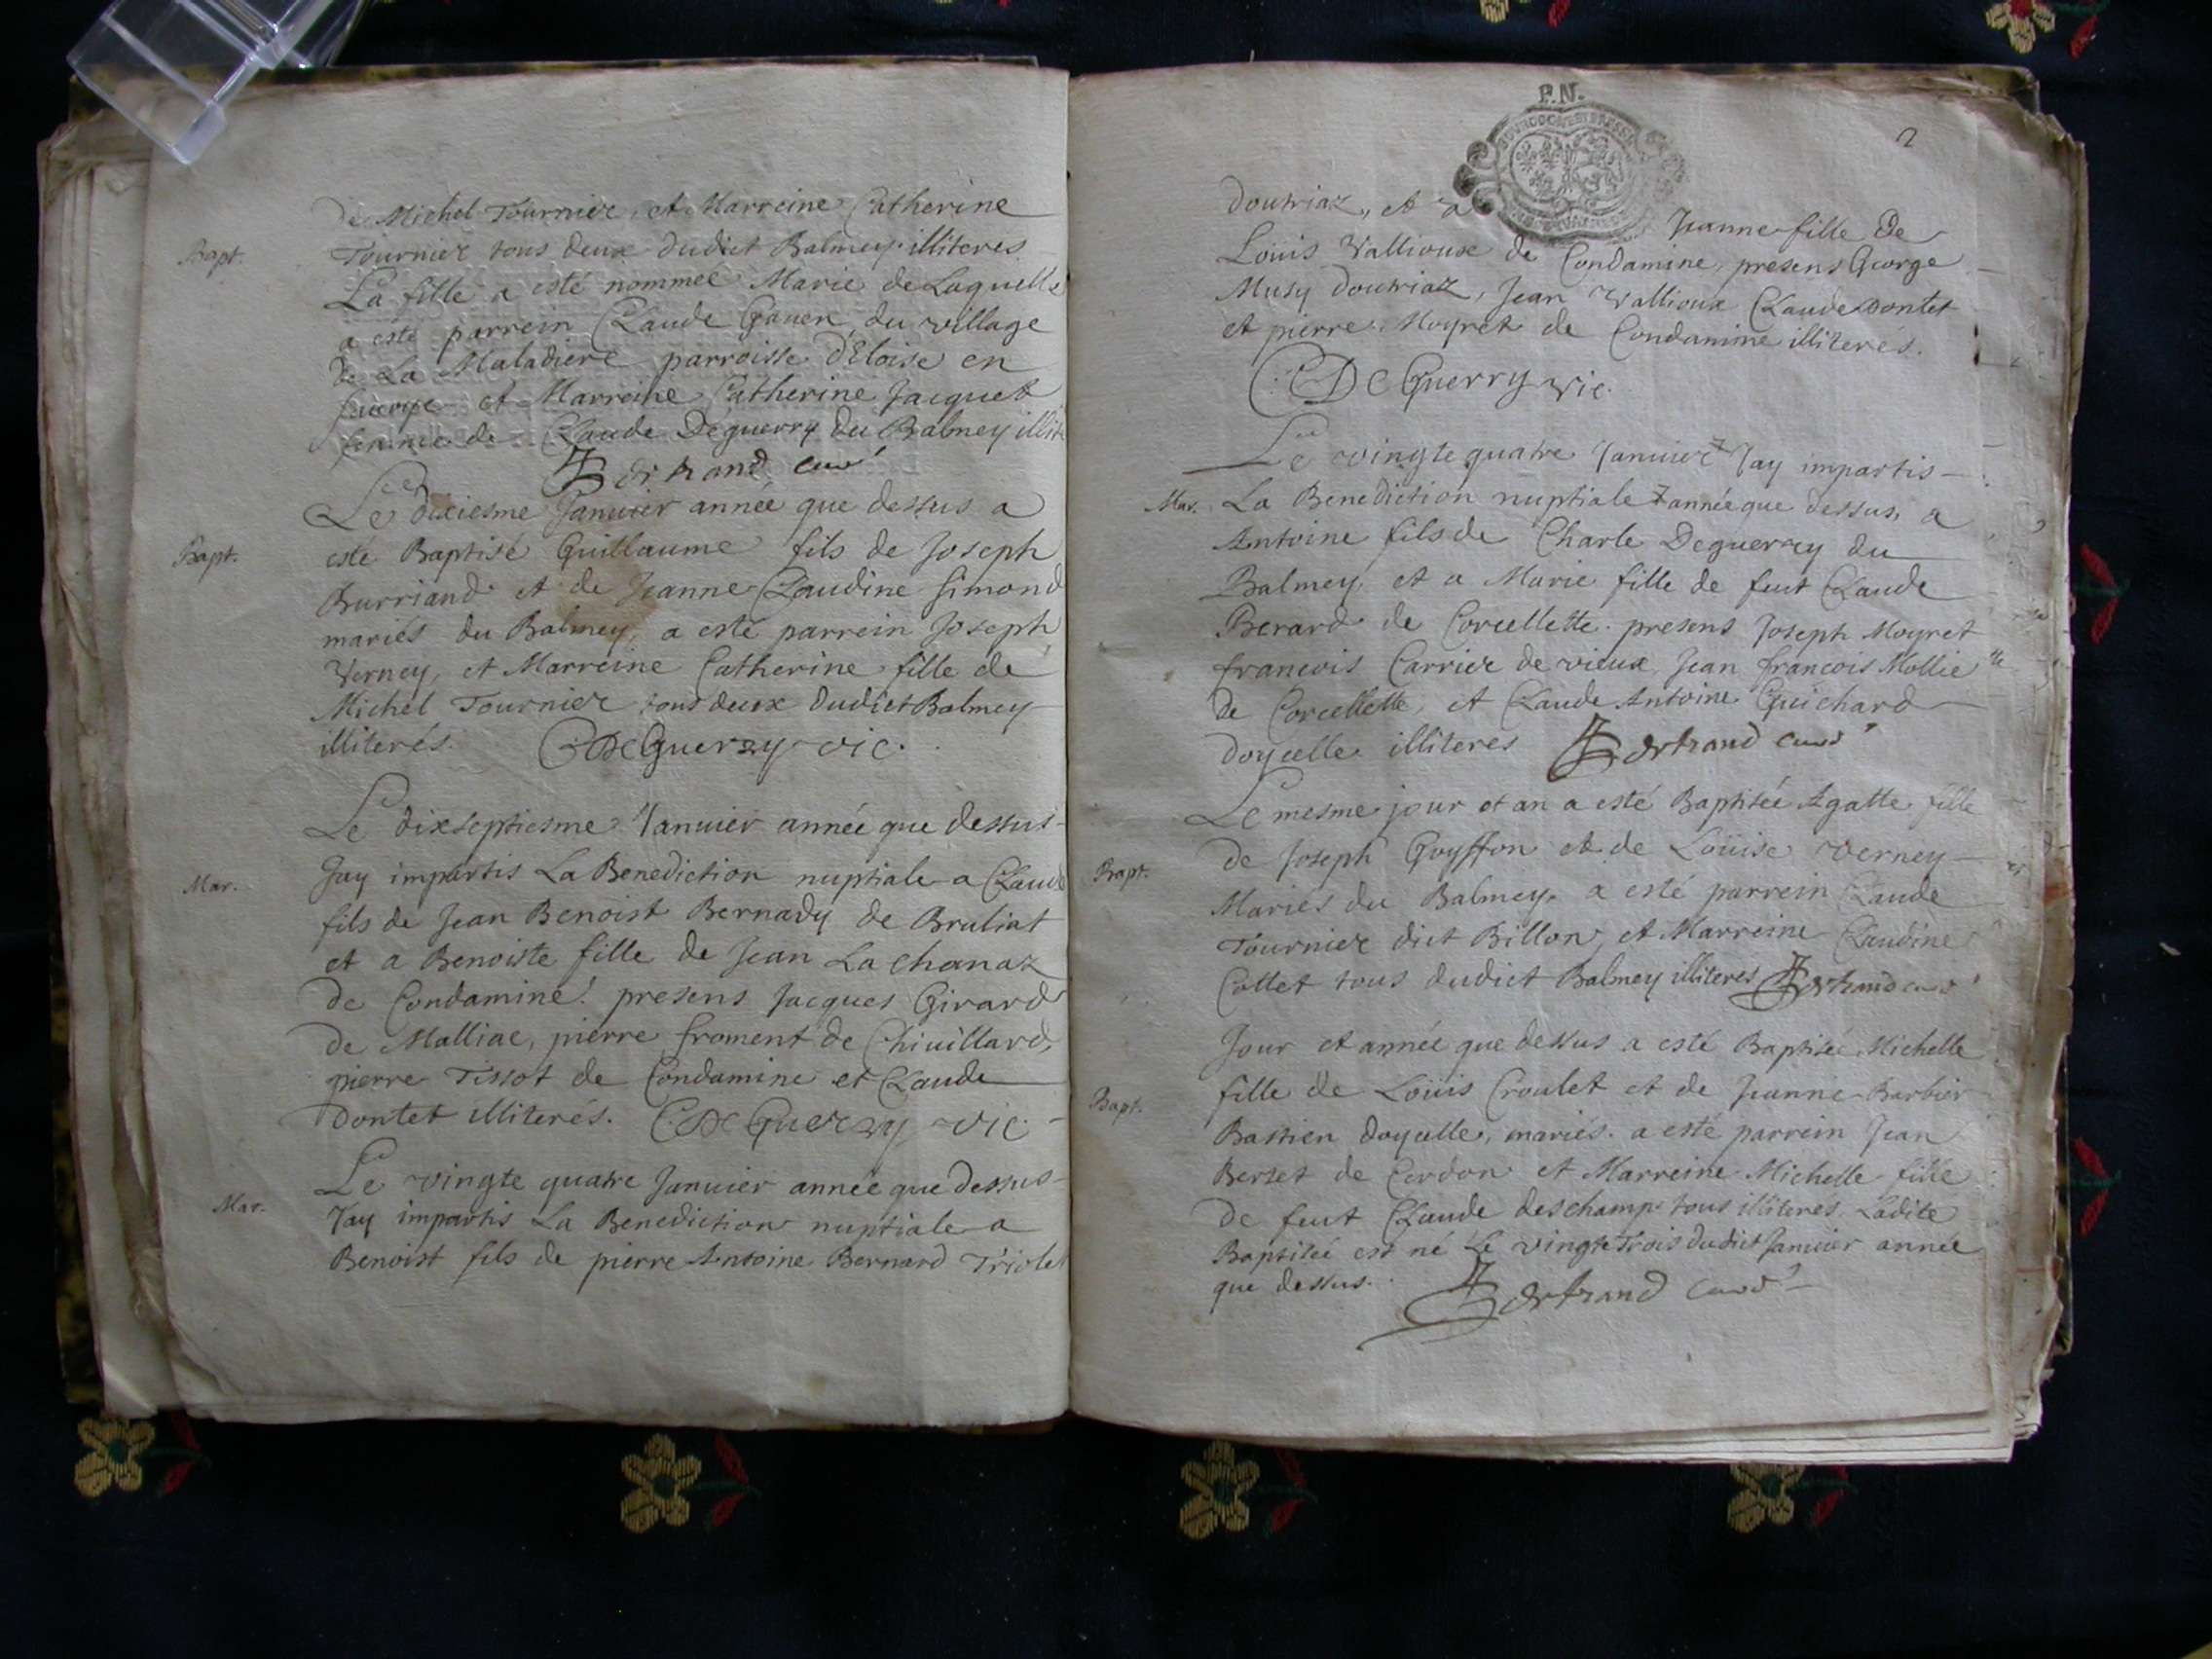 de Michel Tournier, et Marreine Catherine
Bapt. Tournier tous deux dudict Balmey illiteres
La fille a esté nommeé Marie de Laquelle
a esté parrein Claude du village
de La Maladiere parroisse d'Eloise en
et Marreine Catherine Jacquet
femme de Claude Deguerry du Balmey illit
Bertrand curé
Le dixiesme Janvier année que dessus a
Bapt. esté Baptisé Guillaume fils de Joseph
Burriand et de Jeanne Claudine Simond
mariés du Balmey, a esté parrein Joseph
Verney, et Marreine Catherine fille de
Michel Tournier tous deux dudict Balmey
illiterés. C DeGuerry vic.
Le dixseptiesme Janvier année que dessus
Mar. Jay impartis La Benediction nuptiale a Claude
fils de Jean Benoist Bernady de Bruliat
et a Benoiste fille de Jean La chanaz
de Condamine. presens Jacques Girard
de Malliac, pierre froment de Chivillard,
pierre Tissot de Condamine et Claude
Dontet illiterés. C DeGuerry vic.
Le vingte quatre Janvier année que dessus
Mar. Jay impartis La Benediction nuptiale a
Benoist fils de pierre Antoine Bernard Triolet
P.N.
2
Douvriaz, et a Jeanne fille de
Loüis Vallioux de Condamine, presens George
Musy Douvriaz, Jean Vallioux Claude Dontet
et pierre Moyret de Condamine illiterés.
C DeGuerry vic.
Le vingte quatre Janvier Jay impartis
Mar. La Benediction nuptiale année que dessus, a
Antoine fils de Charle Deguerry du
Balmey, et a Marie fille de feut Claude
Berard de Corcellette. presens Joseph Moyret
francois Carrier de vieux, Jean francois Mollie
de Corcellette, et Claude Antoine Guichard
doycelle illiteres Bertrand curé
Le mesme jour et an a esté Baptiseé Agatte fille
Bapt. de Joseph Goyffon et de Loüise Verney
Mariés du Balmey, a esté parrein Claude
Tournier dict Billon, et Marreine Claudine
Collet tous dudict Balmey illiteres Bertrand curé
Jour et année que dessus a esté Baptiseé Michelle
Bapt. fille de Loüis Croulet et de Jeanne Barbier
Bastien doycelle, mariés. a esté parrein Jean
Berset de Cerdon et Marreine Michelle fille
de feut Claude deschamp tous illiterés. Ladite
Baptiseé est né Le vingte Trois dudict Janvier année
que dessus. Bertrand curé